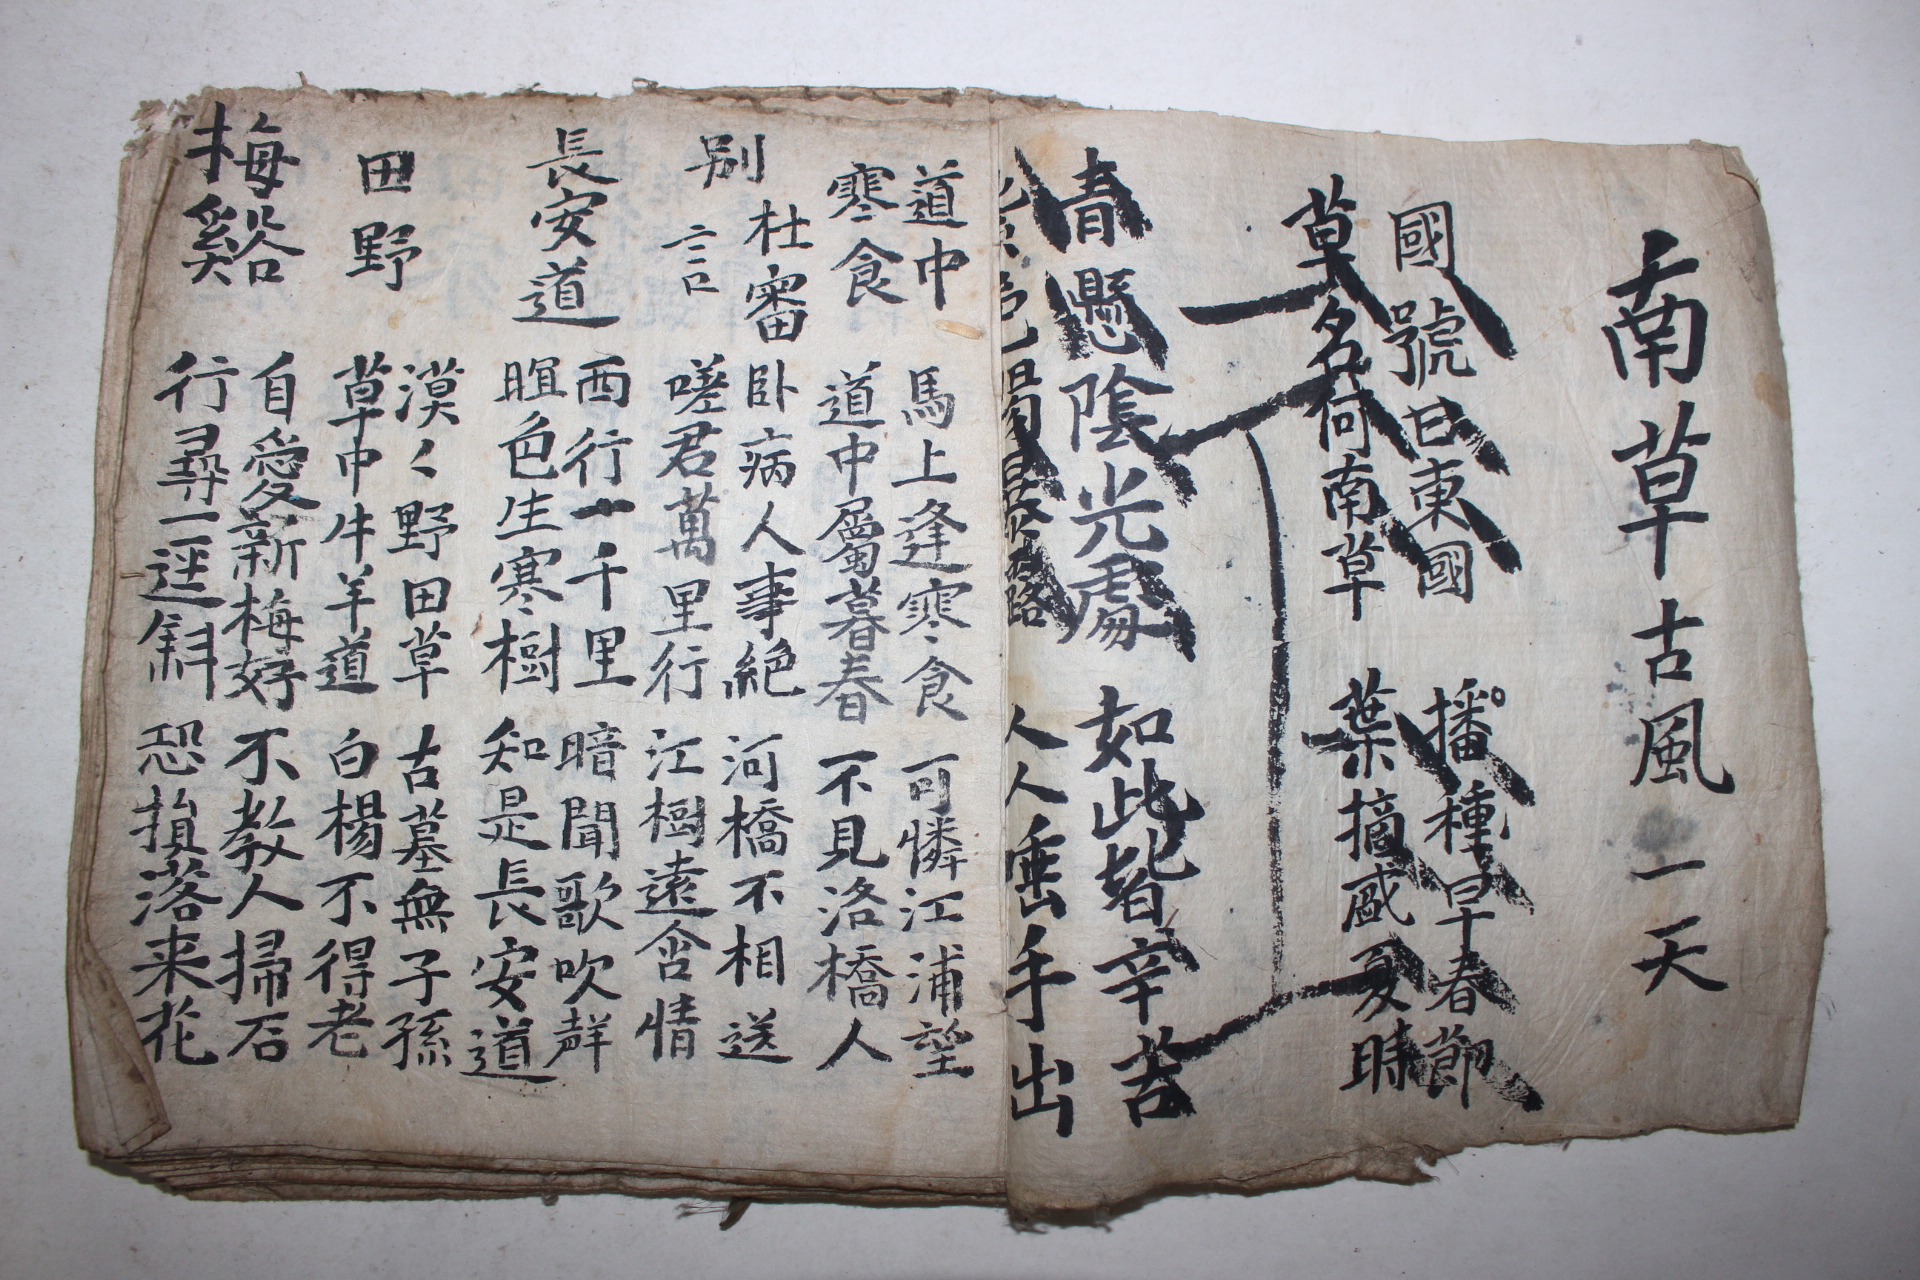 南草古風 一天
國號曰東國 播種早春節
草名何南草 葉摘盛夏時
青懸陰光處 如此皆辛苦
人人垂手出
道中寒食 馬上逢寒食 可憐江浦望
道中屬暮春 不見洛橋人
別杜審言 臥病人事絕 河橋不相送
嗟君萬里行 江樹遠含情
長安道 西行一千里 暗聞歌吹聲
暝色生寒樹 知是長安道
田野 漠々野田草 古墓無子孫
草中牛羊道 白楊不得老
梅谿 自愛新梅好 不教人掃石
行尋一逕斜 恐損落来花